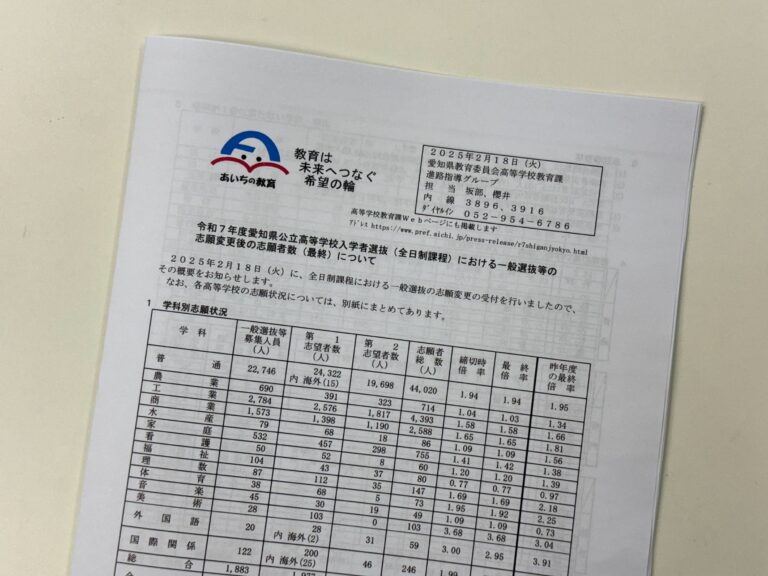 あいちの教育
教育は
未来へつなぐ
希望の輪
2025年2月18日(火)
愛知県教育委員会高等学校教育課
進路指導グループ
担 当 坂部、櫻井
内 線 3896、3916
ダイヤルイン 052-954-6786
高等学校教育課Webページにも掲載します
アドレス https://www.pref.aichi.jp/press-release/r7shiganjyokyo.html
令和7年度愛知県公立高等学校入学者選抜(全日制課程)における一般選抜等の
志願変更後の志願者数(最終)について
2025年2月18日(火)に、全日制課程における一般選抜の志願変更の受付を行いましたので、
その概要をお知らせします。
なお、各高等学校の志願状況については、別紙にまとめてあります。
1 学科別志願状況
学 科 一般選抜等募集人員(人) 第1志望者数(人) 第2志望者数(人) 志願者総数(人) 締切時倍率 最終倍率 昨年度の最終倍率
普 通 22,746 24,322 内 海外(15) 19,698 44,020 1.94 1.94 1.95
農 業 690 391 323 714 1.04 1.03 1.34
工 業 2,784 2,576 1,817 4,393 1.58 1.58 1.66
商 業 1,573 1,398 1,190 2,588 1.65 1.65 1.81
水 産 79 68 18 86 1.09 1.09 1.56
家 庭 532 457 298 755 1.41 1.42 1.38
看 護 50 52 8 60 1.20 1.20 1.39
福 祉 104 43 37 80 0.77 0.77 0.97
理 数 87 112 35 147 1.69 1.69 2.18
体 育 38 68 5 73 1.95 1.92 2.25
音 楽 45 30 19 49 1.09 1.09 0.73
美 術 28 103 0 103 3.68 3.68 3.04
外 国 語 20 28 内 海外(2) 31 59 3.00 2.95 3.91
国際関係 122 200 内 海外(25) 46 246 1.99
総 合 1,883